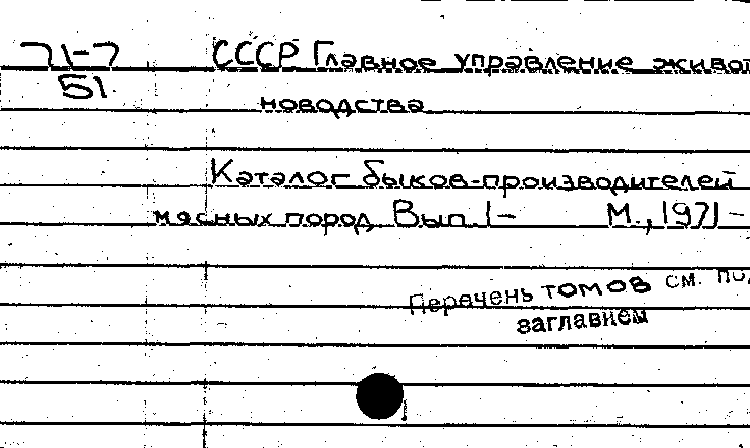 71-7
51
СССР Главное управление живот
новодства
Каталог быков-производителей
мясных пород. Вып. 1- М., 1971-
Перечень томов см. под
заглавием